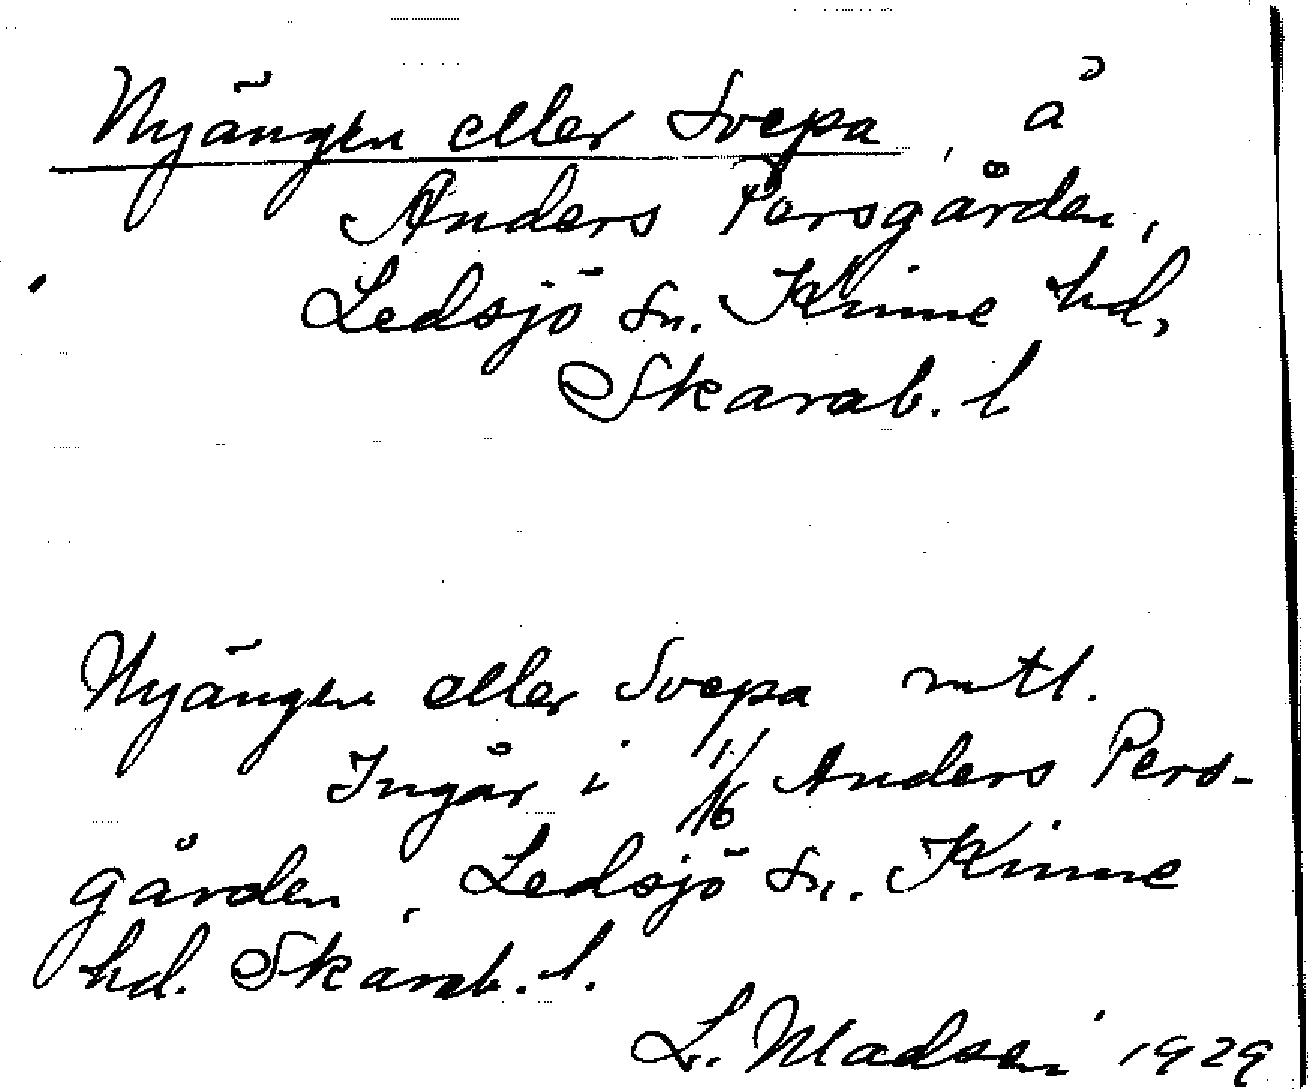 Nyängen eller Svepa, å
Anders Persgården,
Ledsjö sn. Kinne hd,
Skarab. l
Nyängen eller Svepa mtl.
Ingår i 1/16 Anders Pers-
gården, Ledsjö sn. Kinne
hd. Skarab. l.
L. Madsen 1929